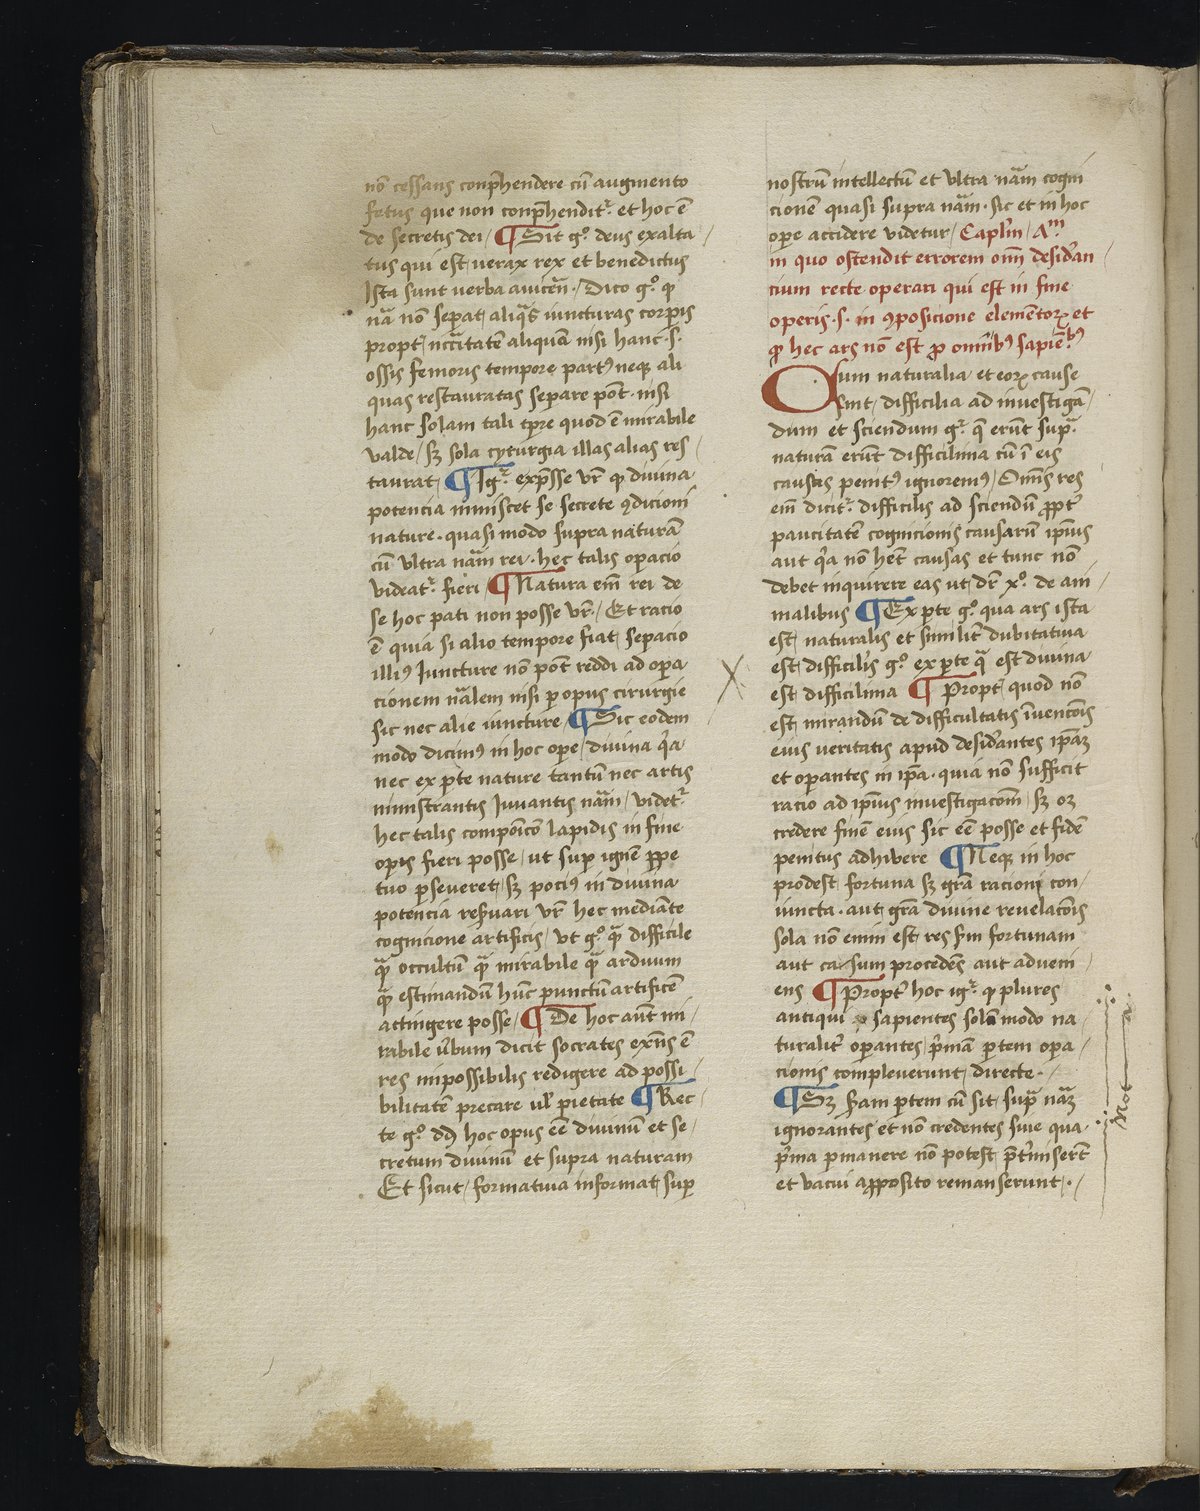 nō cessans conp̄hendere cū augmento
fetus que non conp̄hendit᷑ et hoc ē
de secretis dei / ¶ Sit gͦ deus exalta /
tus qui est uerax rex et benedictus
Ista sunt uerba auicēn · / Dico gͦ ꝙ
nā nō sepat aliqͣs iuncturas corpis
propt nccītatē aliquā nisi hanc · s ·
ossis femoris tempore partꝰ neqꝫ ali
quas restauratas separe pōt · nisi
hanc solam tali tp̄re quod ē mirabile
valde / sꝫ sola cyrurgia illas alias res /
taurat / ¶ Igͬ exp̄sse vr̄ ꝙ diuina
potencia inmiscet se secrete ꝯdicioni
nature · quasi modo supra naturā
cū vltra nām rei · hec talis operacio
videat᷑ fieri / ¶ Natura em̄ rei de
se hoc pati non posse vr̄ / Et racio
ē quia si alio tempore fiat / sepacio
illiꝰ Juncture nō pōt reddi ad opa
cionem nālem nisi p opus cirurgie
sic nec alie iuncture / ¶ Sic eodem
modo dicimꝰ in hoc ope / diuina qͥa
nec ex pte nature tantū nec artis
ministrantis Juuantis nām / videt᷑
hec talis compōicō lapidis in fine
opis fieri posse / ut sup ignē ppe
tuo pseueret / sꝫ pociꝰ in diuina
potencia reseruari vr̄ hec mediāte
cognicione artificis / vt gͦ qͣ difficile
qͣ occultū qͣ mirabile qͣ arduum
qͣ estimandū hūc punctū artificē
attingere posse / ¶ De hoc aūt mi /
rabile v̄bum dicit socrates exn̄s ē
res impossibilis redigere ad possi /
bilitatē precare ul̄ pietate ¶ Rec /
te gͦ dꝫ hoc opus eē diuinū et se /
cretum diuinū et supra naturam
Et sicut / formatiua informat / sup
nostrū intellectū et vltra nām cogni
cionē quasi supra nām · sic et in hoc
ope accidere videtur / Capl̄m / Aᵐ
in quo ostendit errorem om̄ desid̄an /
cium recte operari qui est in fine
operis · s · in ꝯposicione elemētoꝝ et
ꝙ hec ars nō est p omībꝰ sapiēbꝰ
Cum naturalia et eoꝝ cause
sint / difficilia ad inuestigā /
dum et sciendum gͬ q̄ erūt supͣ
naturā erūt difficilima cū ī eis
causas penitꝰ ignoremꝰ / Om̄is res
em̄ dicit᷑ difficilis ad sciendū ppt̄
paucitatē cognicionis causarū ip̄ius
aut qͥa nō hēt causas et tunc nō
debet inquirere eas ut / dr̄ xͦ de ani /
malibus ¶ Ex pte gͦ qua ars ista
est / naturalis et similit̄ dubitatiua
est / difficilis gͦ ex pte qͣ est diuina
est difficilima ¶ Propt / quod nō
est / mirandū de difficultatis īuencōis
eius ueritatis apud desid̄antes ip̄aꝫ
et opantes in ip̄a · quia nō sufficit
racio ad ip̄ius inuestigacōm / sꝫ oꝫ
credere finē eius sic eē posse et fidē
penitus adhibere ¶ Neqꝫ in hoc
prodest / fortuna sꝫ grā racioni con /
iuncta · aut / grā diuine reuelacōis
sola nō enim est / res s̄m fortunam
aut casum procedēs aut adueni /
ens ¶ Propt̄ hoc igͬ ꝙ plures
antiqui sapientes solū modo na /
turalit̄ opantes / pͥmā ptem opa /
cionis compleuerunt / directe · /
¶ Sꝫ s̄am ptem cū sit / supͣ nāꝫ
ignorantes et nō credentes siue qua ·
pͥma pmanere nō potest / p̄t̄miser̄t
et vacui apposito remanserunt / · /
Nota